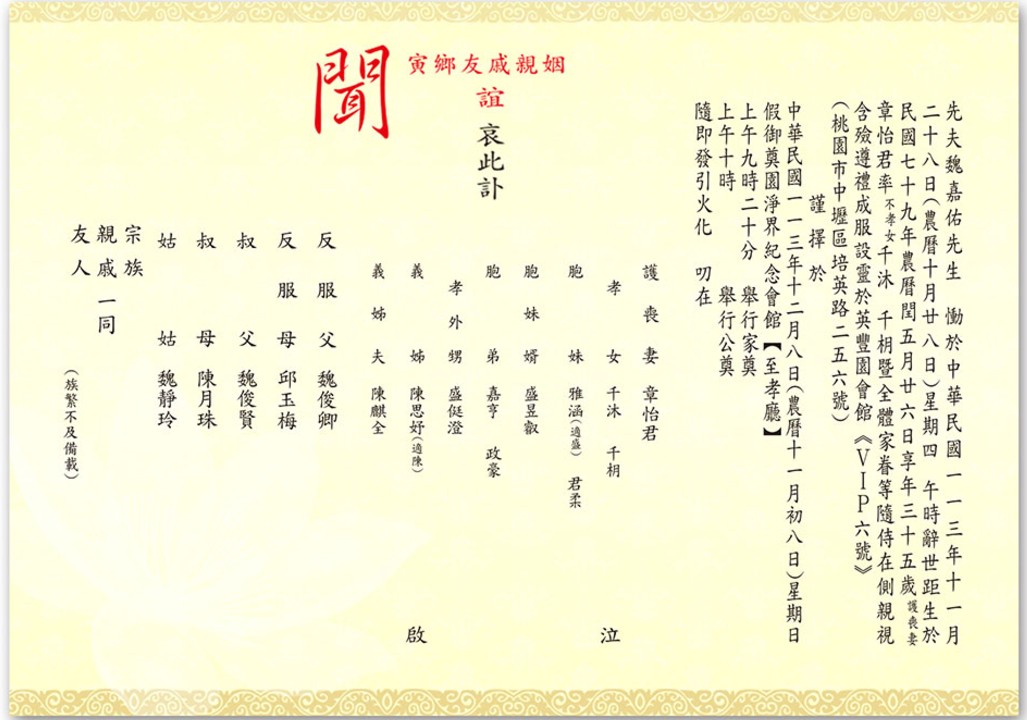 先夫魏嘉佑先生　慟於中華民國一一三年十一月
二十八日（農曆十月廿八日）星期四　午時辭世距生於
民國七十九年農曆閏五月廿六日享年三十五歲護喪妻
章怡君率不孝女千沐　千栩暨全體家眷等隨侍在側親視
含殮遵禮成服設靈於英豐園會館《VIP六號》
（桃園市中壢區培英路二五六號）
謹擇於
中華民國一一三年十二月八日（農曆十一月初八日）星期日
假御奠園淨界紀念會館【至孝廳】
上午九時二十分　舉行家奠
上午十時　舉行公奠
隨即發引火化　叨在
姻親戚友鄉寅
誼　哀此訃
聞
護喪妻　章怡君
孝女　千沐　千栩
胞妹　雅涵（適盛）　君柔
胞妹婿　盛昱叡
胞弟　嘉亨　政豪
孝外甥　盛侹澄
義姊　陳思妤（適陳）
義姊夫　陳麒全
泣
啟
反服父　魏俊卿
反服母　邱玉梅
叔父　魏俊賢
叔母　陳月珠
姑姑　魏靜玲
宗族
親戚一同
友人
（族繁不及備載）